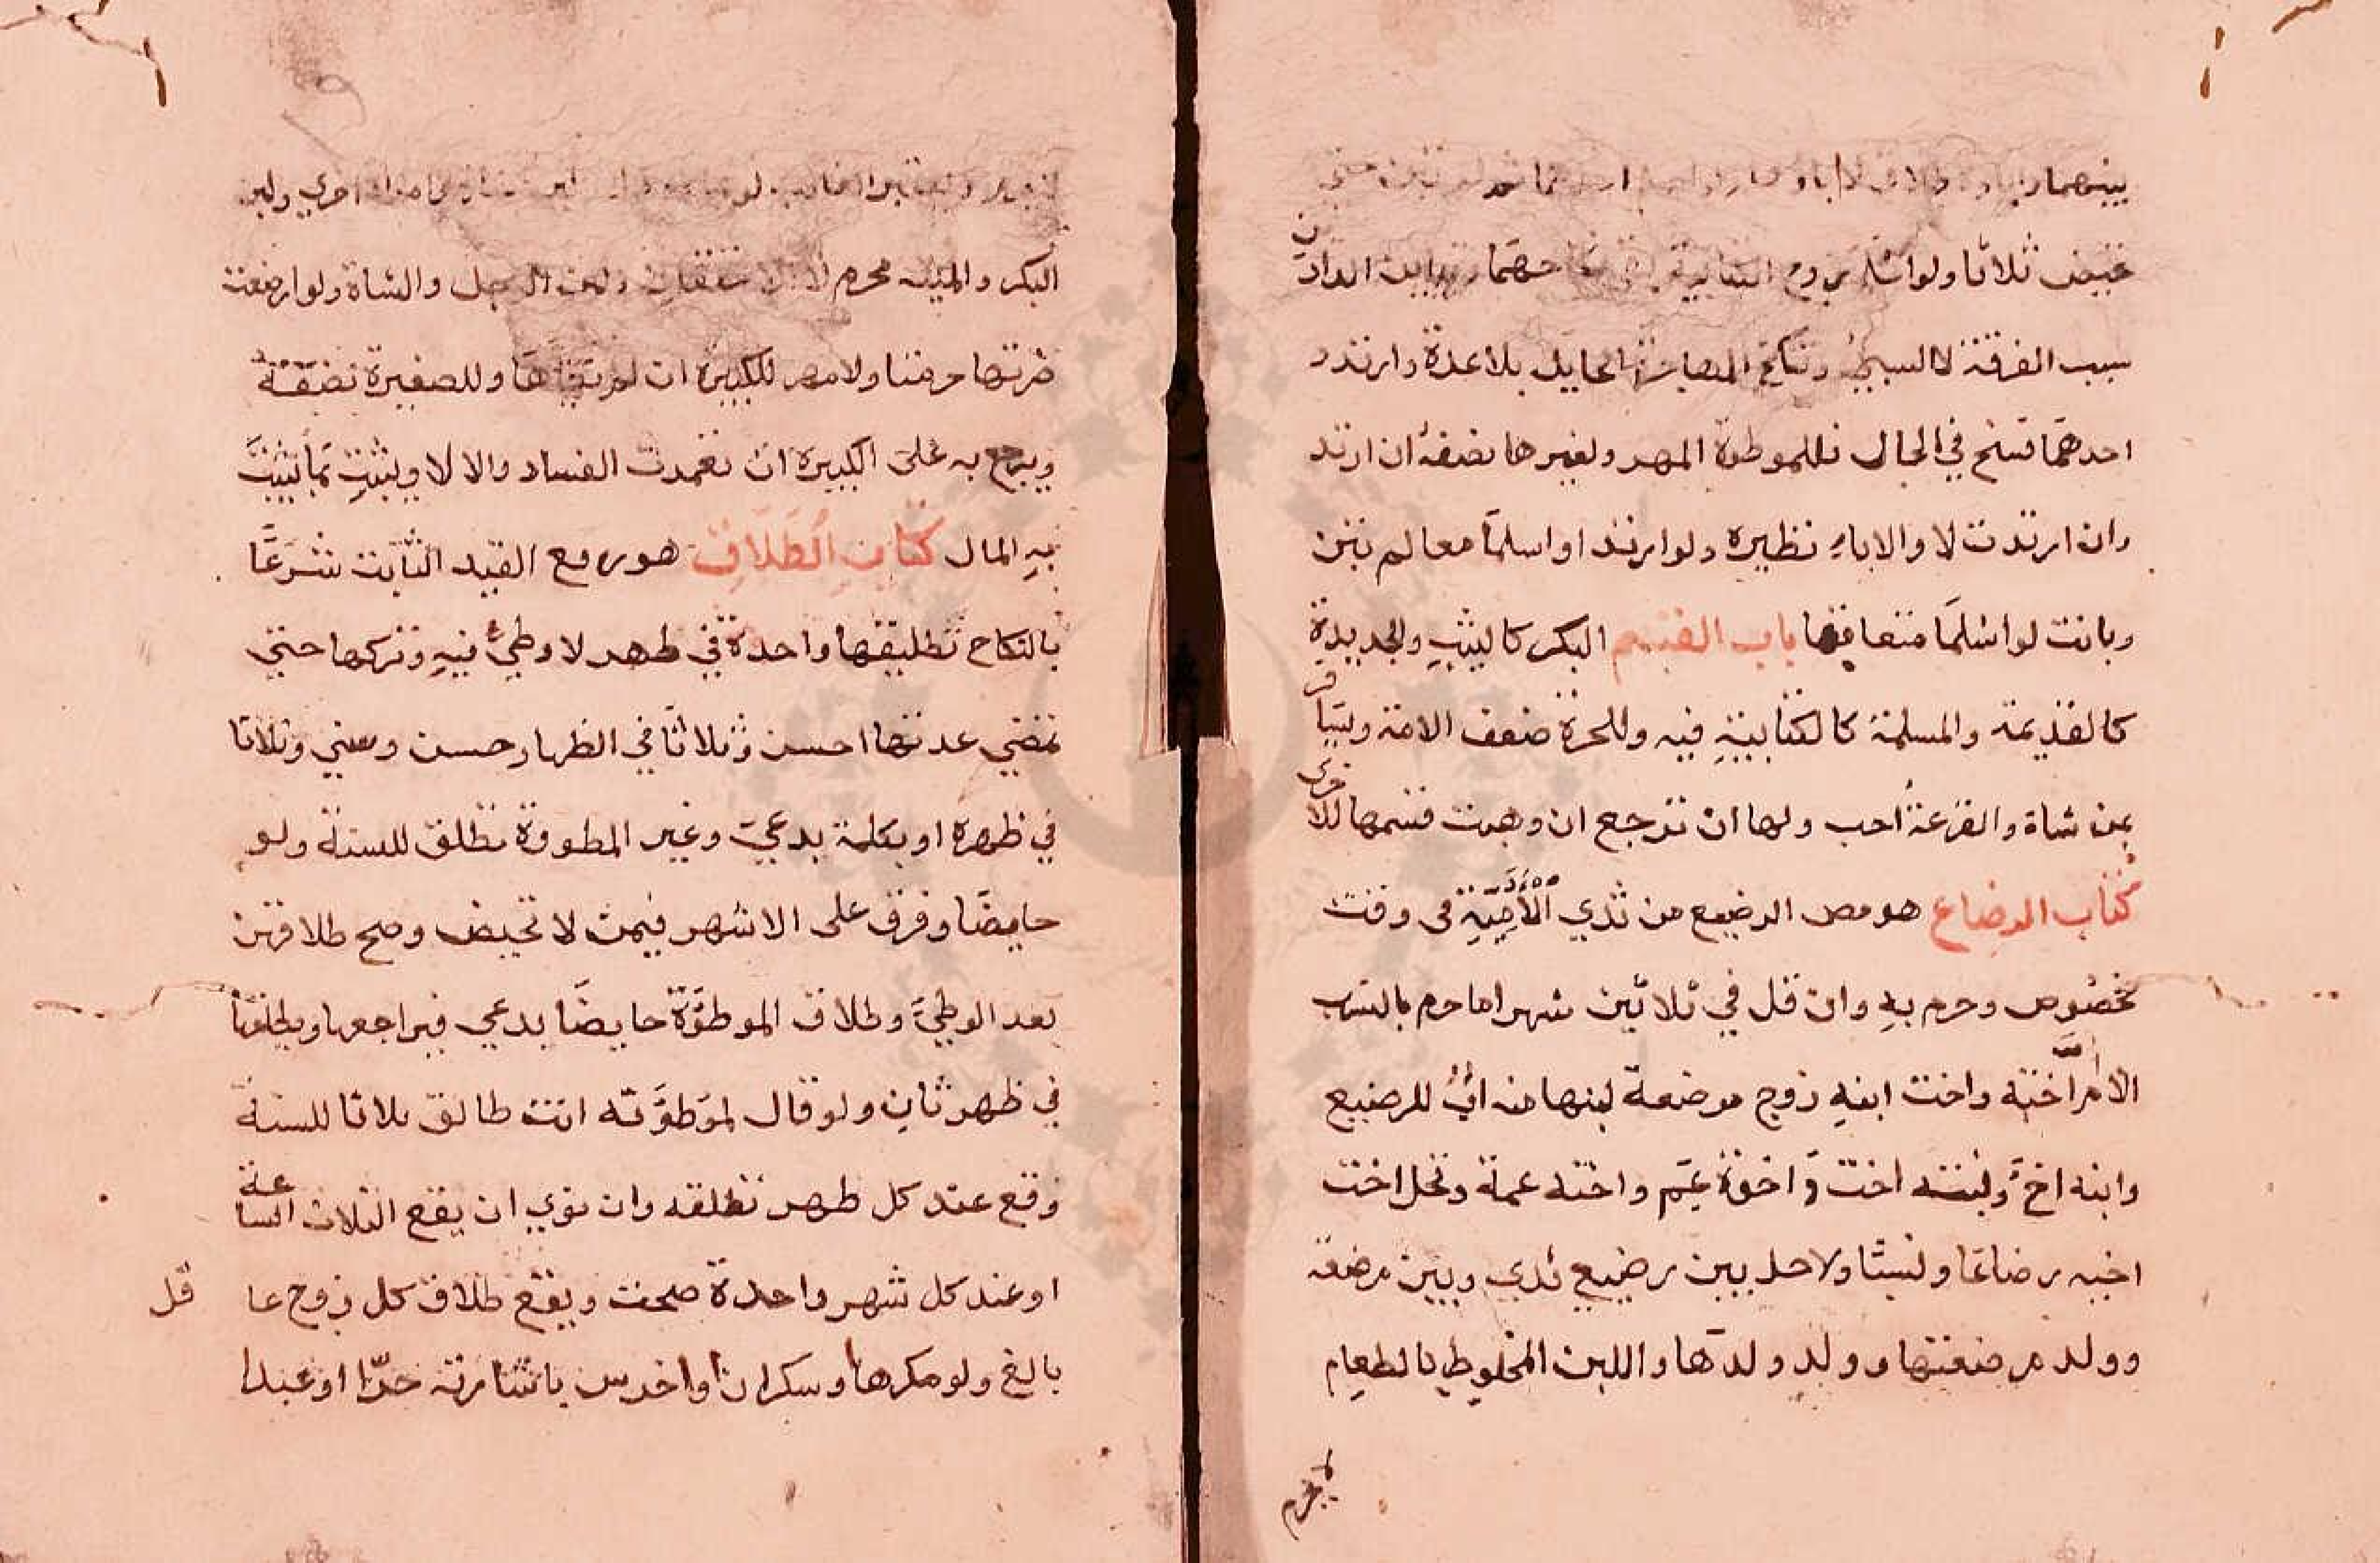 بينهما
تحيض ثلاثا ولو اسلم زوج الكتابية وتباين الدارين
سبب الفرقة لا السبي وتنكح المهاجرة الحايل بلا عدة وارتداد
احدهما فسخ في الحال فللموطوة المهر ولغيرها نصفه ان ارتد
وان ارتدت لا والاباء نظيره ولو ارتدا او اسلما معا لم تبن
وبانت لو اسلما متعاقبها باب القسم البكر كالثيب والجديدة
كالقديمة والمسلمة كالكتابية فيه وللحرة ضعف الامة ويسافر
بمن شاة والقرعة احب ولها ان ترجع ان وهبت قسمها للاخرى
كتاب الرضاع هو مص الرضيع من ثدي الآدمية في وقت
مخصوص وحرم به وان قل في ثلاثين شهرا ما حرم بالنسب
الا ام اخته واخت ابنه زوج مرضعة لبنها منه اب للرضيع
وابنه اخ وبنته اخت واخوة عم واخته عمة وتحل اخت
اخيه رضاعا ونسبا ولا حل بين رضيعي ثدي وبين مرضعة
وولد مرضعتها وولد ولدها واللبن المخلوط بالطعام
لا يحرم
اخري ولبن
البكر والميته محرم لا والرجل والشاة ولو ارضعت
ضرتها حرمتا ولا مهر للكبيرة ان لم يطاها وللصغيرة نصفه
ويرجع به على الكبيرة ان تعمدت الفساد والا لا ويثبت بما يثبت
به المال كتاب الطلاق هو رفع القيد الثابت شرعا
بالنكاح تطليقها واحدة في طهر لا وطئ فيه وتركها حتي
تمضي عدتها احسن وثلاثا في اطهار حسن وسني وثلاثا
في طهر او بكلمة بدعي وغير المطووة تطلق للسنة ولو
حايضا وفرق على الاشهر فيمن لا تحيض وصح طلاقهن
بعد الوطي وطلاق الموطوة حايضا بدعي فيراجعها ويطلقها
في طهر ثان ولو قال لموطوته انت طالق ثلاثا للسنة
وقع عند كل طهر تطلقه وان نوي ان يقع الثلاث الساعة
او عند كل شهر واحدة صحت ويقع طلاق كل زوج عاقل
بالغ ولو مكرها وسكرانا واخرس باشارته حرا او عبدا